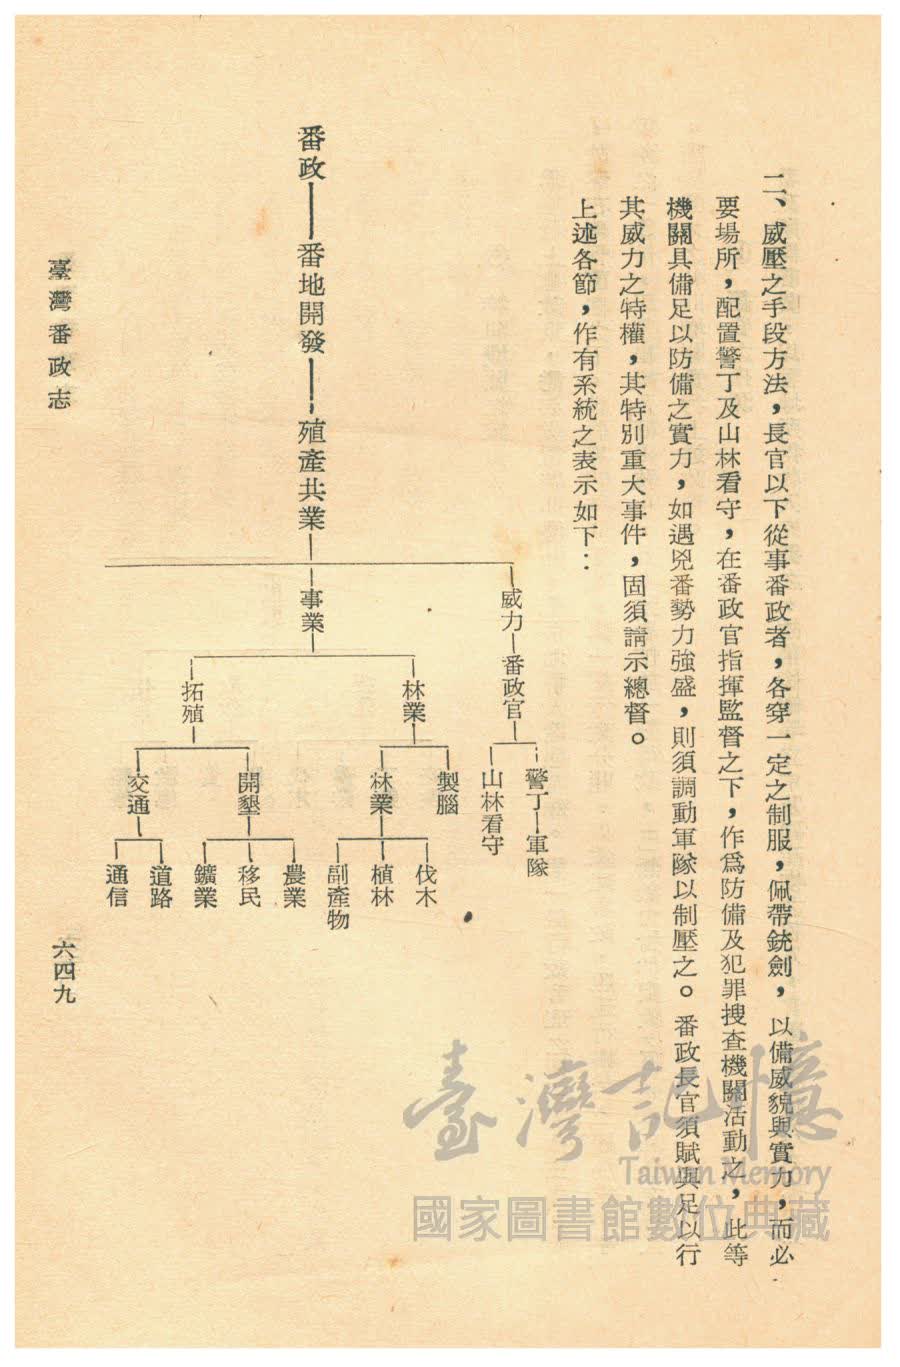 二、威壓之手段方法，長官以下從事番政者，各穿一定之制服，佩帶銃劍，以備威貌與實力，而必
要場所，配置警丁及山林看守，在番政官指揮監督之下，作爲防備及犯罪搜查機關活動之，此等
機關具備足以防備之實力，如遇兇番勢力強盛，則須調動軍隊以制壓之。番政長官須賦與足以行
其威力之特權，其特別重大事件，固須請示總督。
上述各節，作有系統之表示如下：
番政——番地開發——，殖產共業
威力 番政官
警丁 軍隊
山林看守
事業
林業
製腦
林業
伐木
植林
副產物
拓殖
開墾
農業
移民
鑛業
交通
道路
通信
臺灣番政志
六四九
臺灣記憶
Taiwan Memory
國家圖書館數位典藏